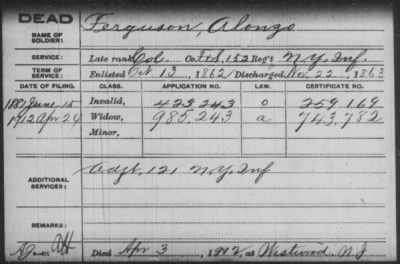 DEAD
NAME OF SOLDIER: Ferguson, Alonzo
SERVICE: Late rank Col Co. F&S, 152 Reg't N.Y. Inf.
TERM OF SERVICE: Enlisted Oct 13, 1862 Discharged Nov. 22, 1863
DATE OF FILING. CLASS. APPLICATION NO. LAW. CERTIFICATE NO.
1881 June 15 Invalid, 423.243 O 259.169
1912 Apr 24 Widow, 985.243 a 743.782
Minor,
ADDITIONAL SERVICES: Adjt. 121 N.Y. Inf
REMARKS:
Died Apr 3, 1912, at Westwood N.J